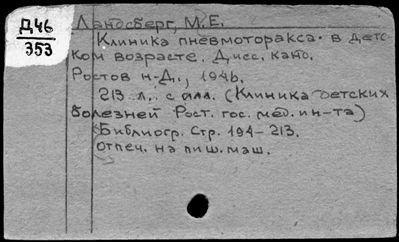 Д46
353
Ландсберг, М.Е.
Клиника пневмоторакса в детс-
ком возрасте. Дисс. канд.
Ростов н-Д., 1946.
213 л. с илл. (Клиника детских
болезней Рост. гос. мед. ин-та)
Библиогр. стр. 194-213.
Отпеч. на пиш. маш.